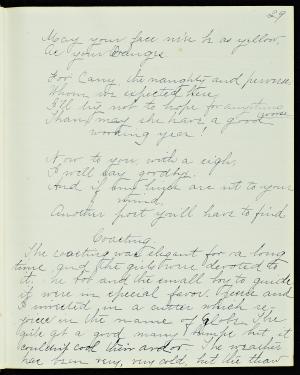 29
May your face ne'er be as yellow,
As your Oranges
For Carry the naughty and perverse
Whom we expected here
I'll try not to hope for anything worse
Than may she have a good
working year!
Now to you, with a sigh,
I will say goodby.
And if my lines are not to your
mind,
Another poet you'll have to find
Coasting.
The coasting was elegant for a long
time and the girls were devoted to
it. The bob and the small boy to guide
it were in especial favor. Bessie and
I invested in a cutter which re-
joices in the name of Globe. The
girls got a good many bumps but it
couldn't cool their ardor. The weather
has been very, very cold, but the thaw